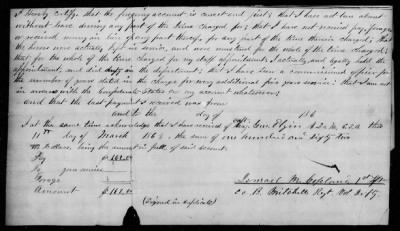 I hereby certify, that the foregoing account is correct and just; that I have not been absent
without leave during any part of the time charged for; that I have not received pay, forage,
or received money in lieu of any part thereof, for any part of the time therein charged; that
the horses were actually kept in service, and were mustered for the whole of the time charged;
that for the whole of the time charged for my staff appointment, I actually and legally held the
appointment, and did duty in the department; that I have been a commissioned officer for
the number of years stated in the charge for every additional five years service; that I am not
in arrears with the Confederate States on any account whatsoever;
and that the last payment I received was from
and to the day of 186
I at the same time acknowledge that I have received of this
11th day of March 186 , the sum of one hundred and sixty
dollars, being the amount in full of said account.
Pay
Forage
Amount
(Signed in duplicate)
1st Lt
Co. B. Regt Vol